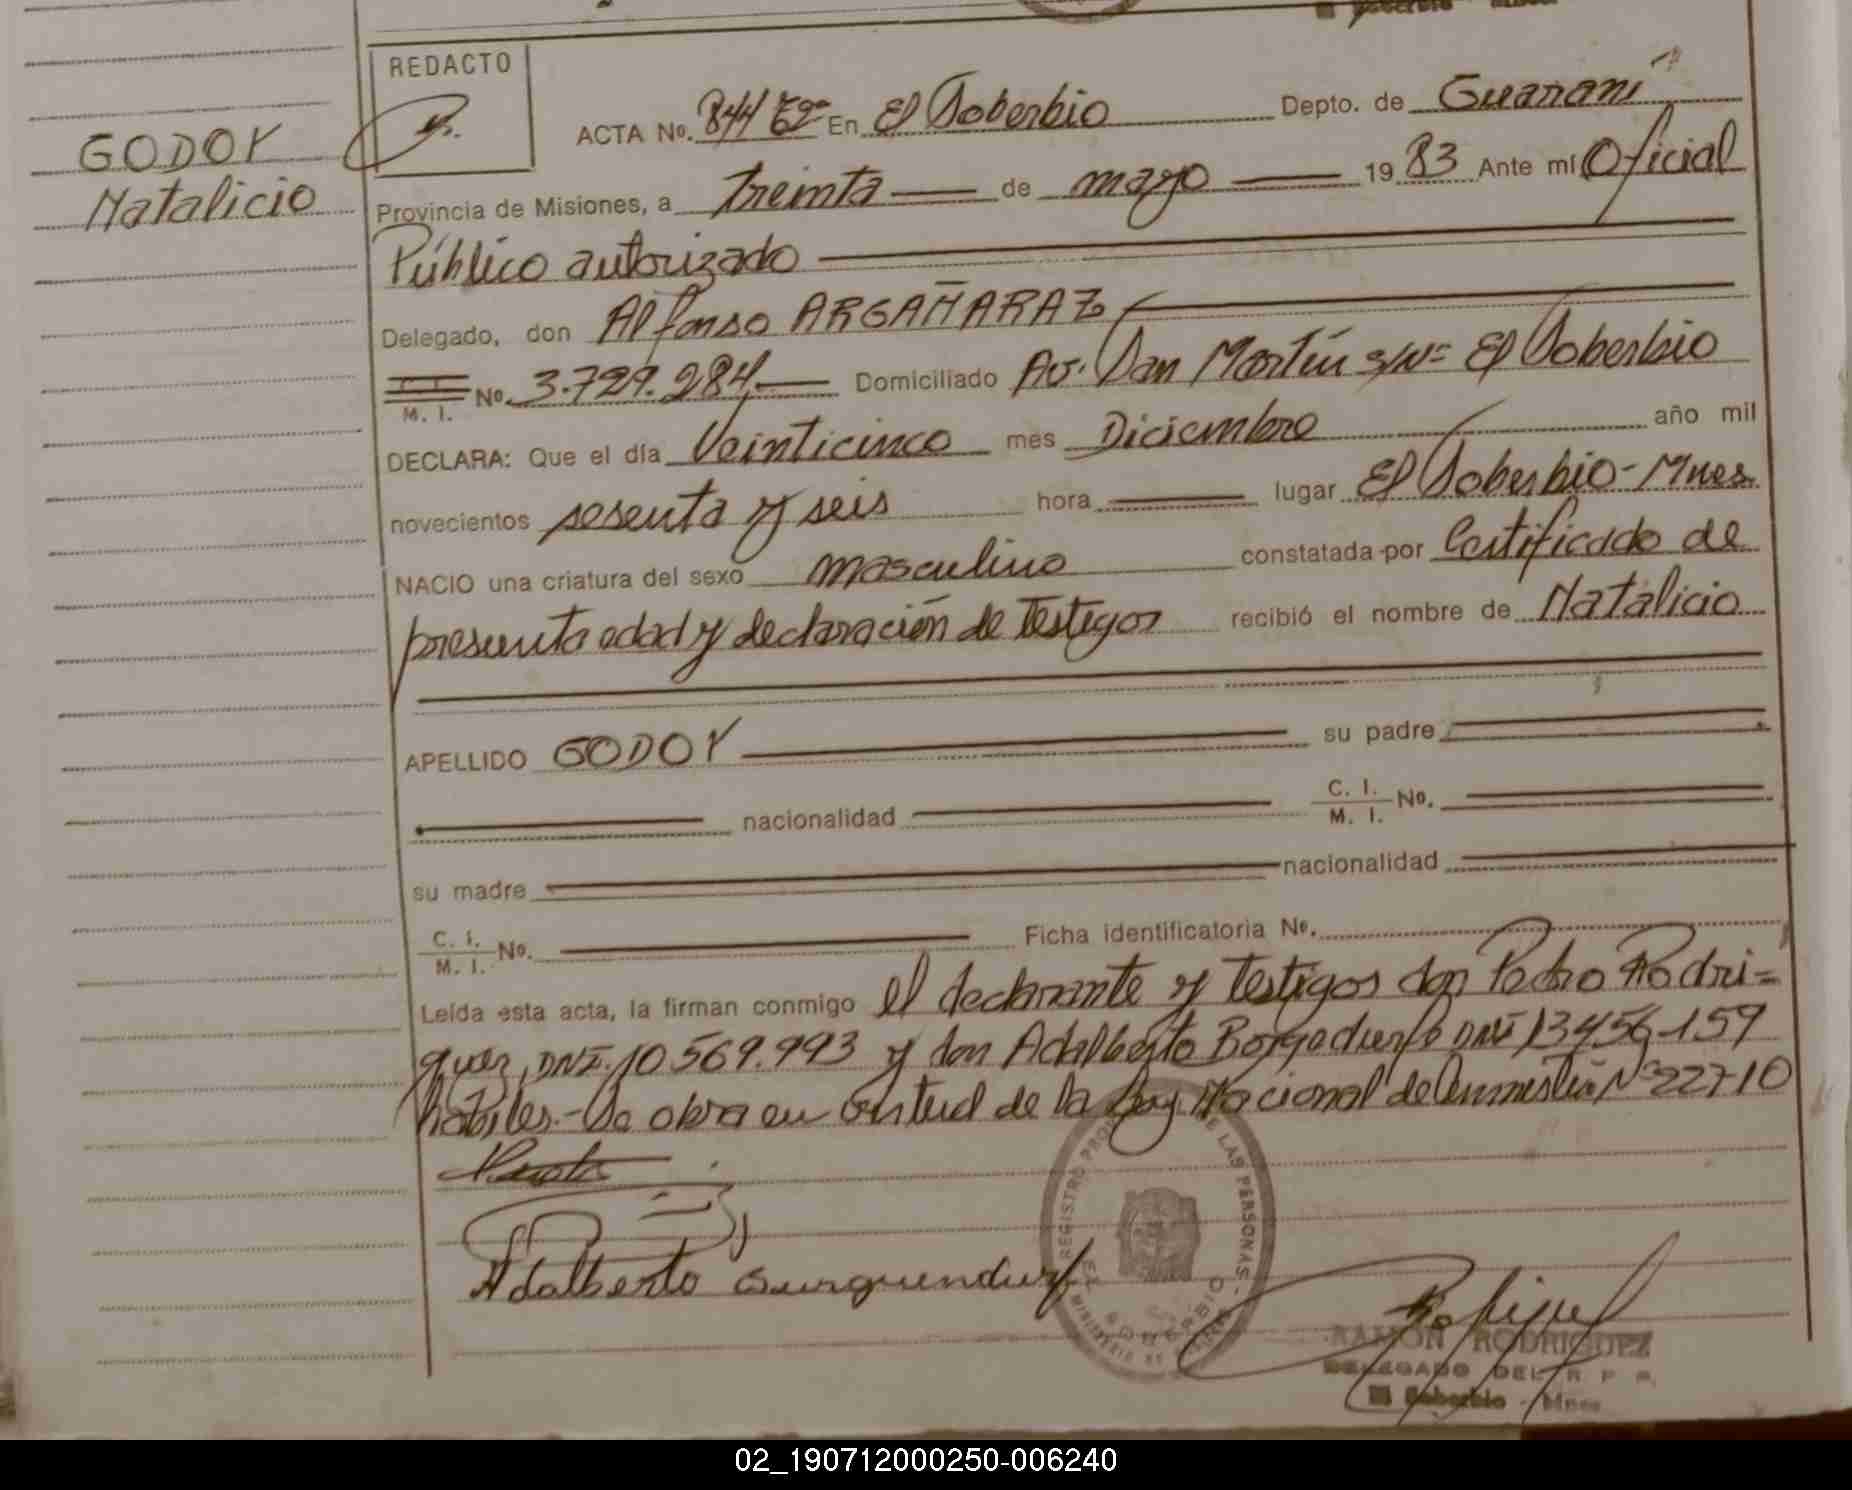 REDACTO
GODOY
Natalicio
ACTA No. 844 Tº En El Soberbio Depto. de Guaraní
Provincia de Misiones, a treinta de mayo 1983 Ante mí Oficial
Público autorizado
Delegado, don Alfonso ARGAÑARAZ
M. I. No. 3.729.284 Domiciliado Av. San Martín s/Nº El Soberbio
DECLARA: Que el día Veinticinco mes Diciembre año mil
novecientos sesenta y seis hora lugar El Soberbio - Mnes.
NACIO una criatura del sexo masculino constatada por Certificado de
presunta edad y declaración de Testigos recibió el nombre de Natalicio
APELLIDO GODOY su padre
nacionalidad C. I. M. I. No.
su madre nacionalidad
C. I. M. I. No. Ficha identificatoria No.
Leída esta acta, la firman conmigo el declarante y Testigos don Pedro Rodri=
guez, DNI. 10.569.993 y don Adalberto DNI 13456-159
habiles.- Se obra en virtud de la Ley Nacional de Amnistía Nº 22710
Adalberto
REGISTRO DE LAS PERSONAS
RAMON RODRIGUEZ
DELEGADO DEL R P P.
El Soberbio - Mnes
02_190712000250-006240